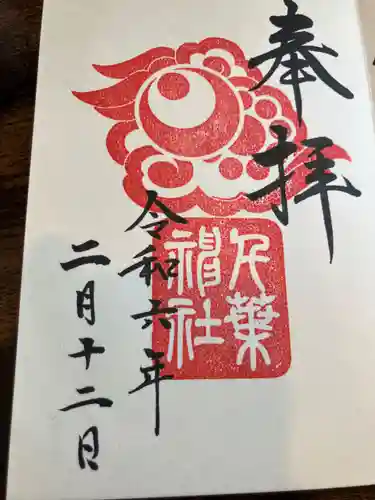 奉拝
千葉
神社
令和六年
二月十二日